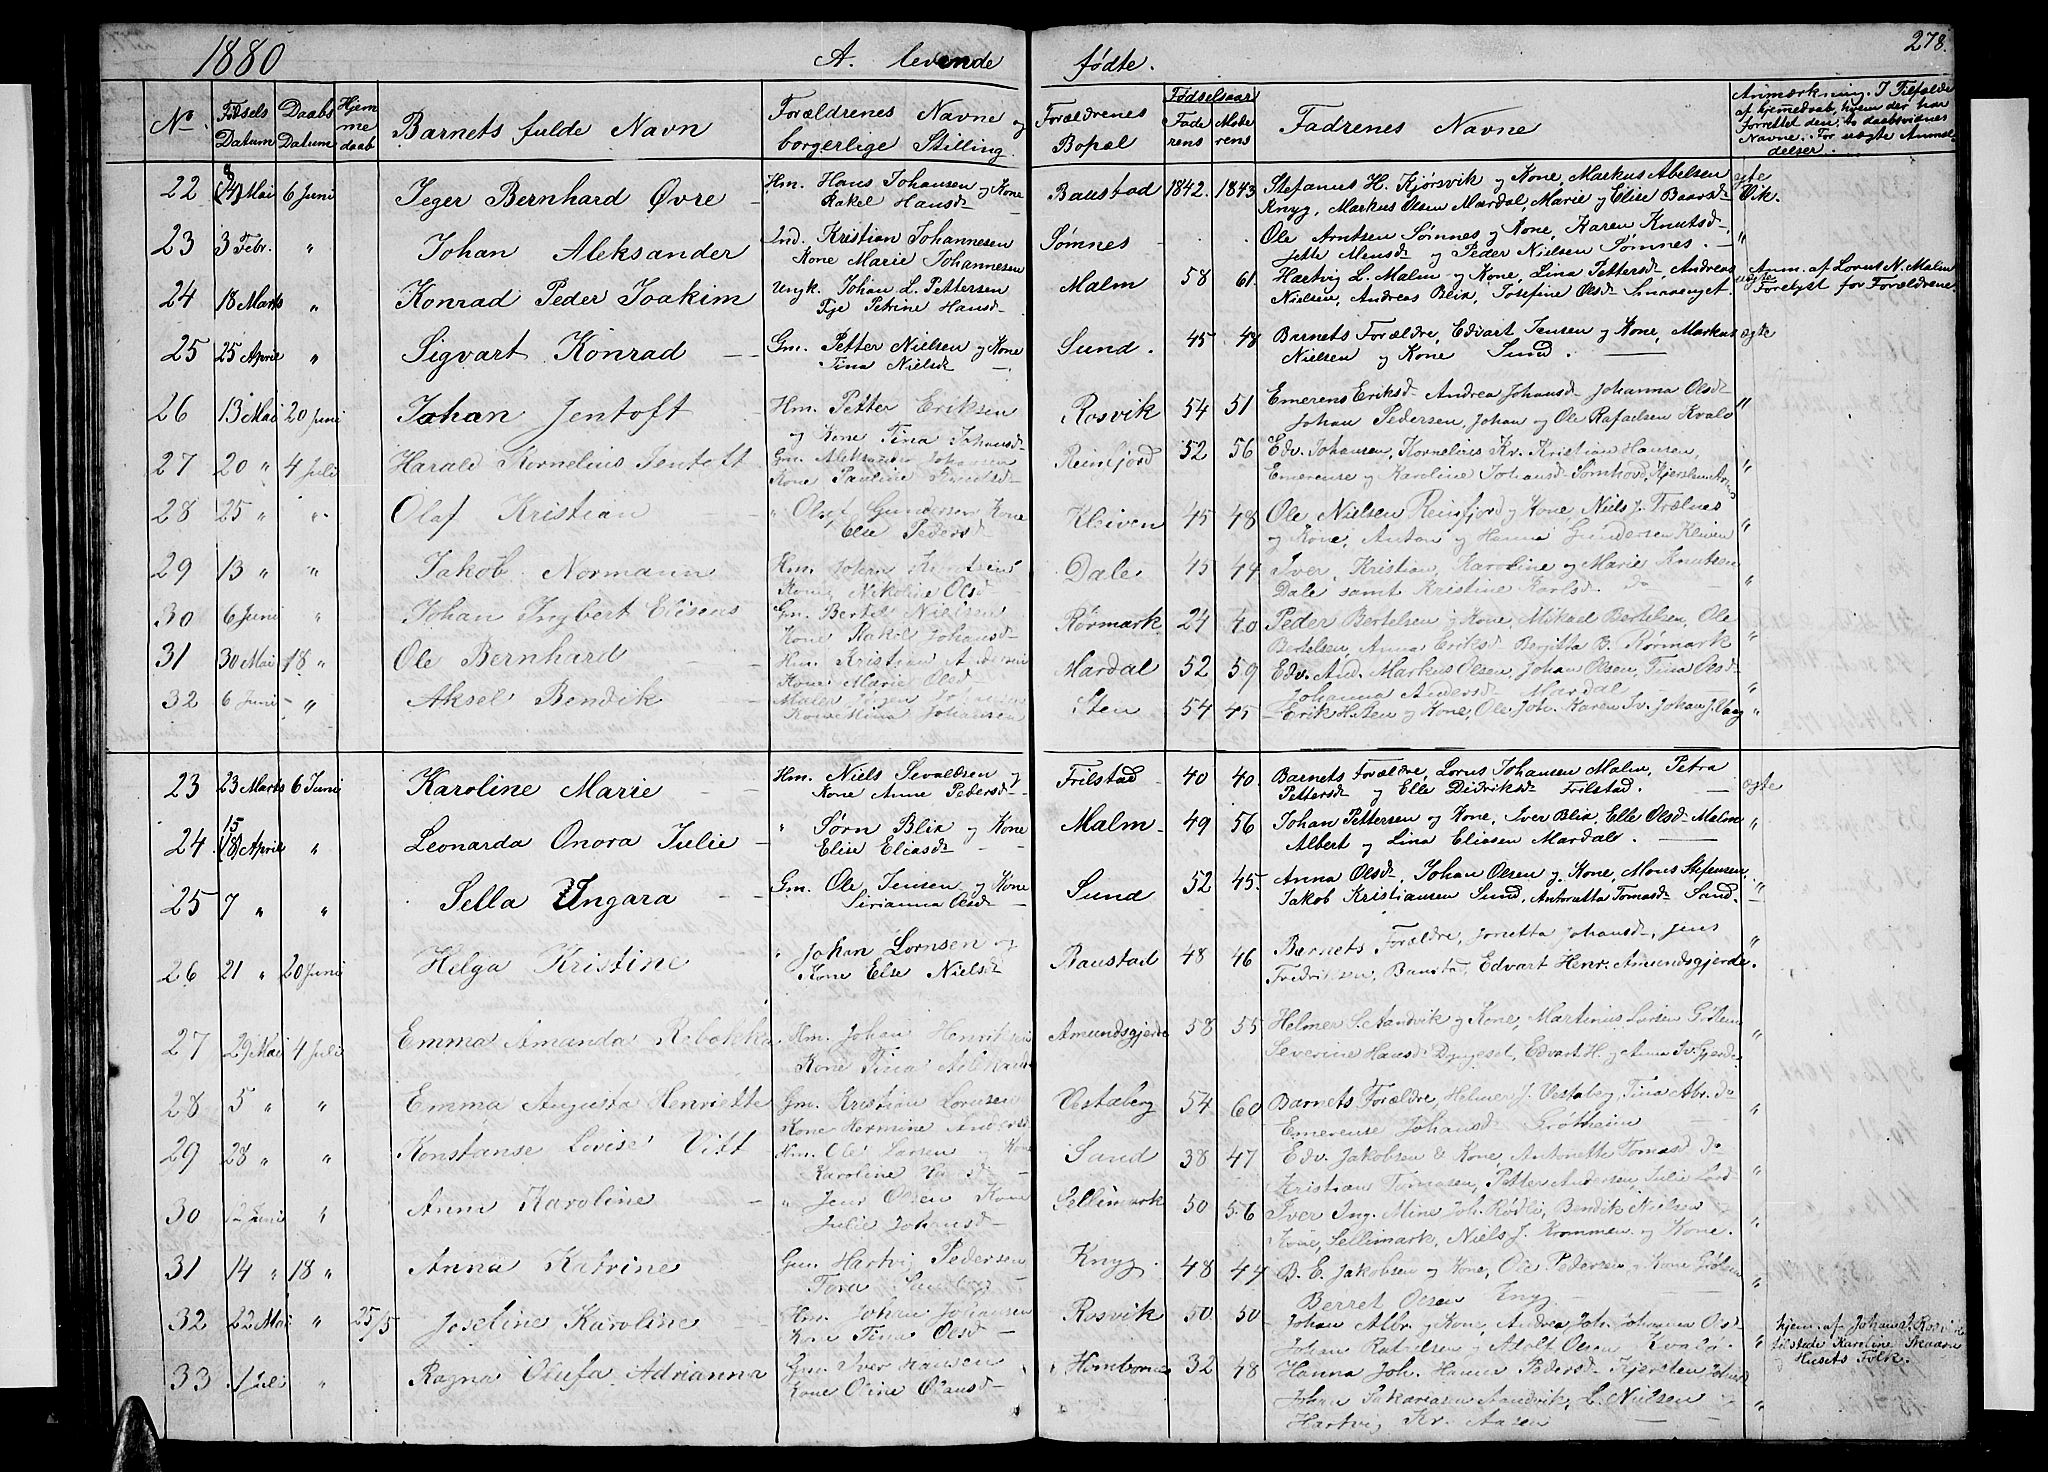 1880 A. levende fødte. 278.
No. Fødsels Datum Daabs Datum Hjemmedaab Barnets fulde Navn Forældrenes Navne og borgerlige Stilling. Forældrenes Bopæl Fødselsaar Faderens Moderens Fadrenes Navne Anmærkning.
22 Mai 6 Juni Jeger Bernhard Øvre Hm. Hans Johansen og Kone Baustad 1842. 1843 Stefanus H. Kjørsvik og Kone, Markus Abelsen egte
Rakel Hansd Knyg, Markus Olsen Mardal, Marie og Elise Baarsd Vik.
23 3 Febr. " Johan Aleksander Ind. Kristian Johannesen Sømnes Ole Arntsen Sømnes og Kone, Karen Knutsd "
Kone Marie Johannesen Jette Monsd og Peder Nielsen Sømnes.
24 18 Marts " Konrad Peder Joakim Ungk. Johan L. Pettersen Malm 58 61 Hartvig L. Malm og Kone, Lina Pettersd Andreas uegte Anm. af Lorns N. Malm
Pje Petrine Hansd Nielsen, Andreas Blix, Josefine Olsd Foreløst for Forældrene.
25 25 April " Sigvart Konrad Gm. Petter Nielsen og Kone Sund. 45 48 Barnets Forældre, Edvart Jensen og Kone, Markus egte
Tina Nielsd Nielsen og Kone Sund.
26 13 Mai 20 Juni Johan Jentoft Hm. Petter Eriksen Rosvik 54 51 Emerens Eriksd Andrea Johansd Johanna Olsd "
og Kone Tina Johansd Johan Pedersen, Johan og Ole Rafaelsen Kvalø
27 20 " 4 Juli Harald Kornelius Jentoft Gm. Aleksander Johansen Reinfjord 52 56 Edv. Johansen, Kornelius Kr. Kristian Hansen, "
Kone Pauline Knutsd Emerense og Karoline Johansd
28 25 " " Olaf Kristian " Oluf Gundersen Kone Kleiven 45 48 Ole Nielsen Reinfjord og Kone Niels J. Trælnes "
Elie Pedersd og Kone, Anton og Hanna Gundersen Kleiven
29 13 " " Jakob Normann Hm. Johan Knutsen Dale 45 44 Iver, Kristian, Karoline og Marie Knutsen "
Kone Nikoline Olsd Dale samt Kristine Karlsd. do
30 6 Juni " Johan Ingbert Elisens Gm. Bertel Nielsen Rørmark 24 40 Peder Bertelsen og Kone, Mikael Bertelsen, Ole "
Kone Rakel Johansd Bertelsen, Anna Eriksd Bergitta B. Rørmark
31 30 Mai 18 " Ole Bernhard Hm. Kristian Andersen Mardal 52 59 Edv. And. Markus Olsen, Johan Olsen, Tina Olsd "
Kone Marie Olsd Johanna Andersd Mardal
32 6 Juni " Aksel Bendik Sten 54 45 Erik H. Sten og Kone, Ole Joh. Karen Iv. Johan "
23 23 Marts 6 Juni Karoline Marie Hm. Niels Sevaldsen og Frilstad 40 40 Barnets Forældre, Lorns Johansen Malm, Petra egte
Kone Anne Pedersd Pettersd og Elle Didriksd Frilstad.
24 15 (18) April " Leonarda Onora Julie " Sørn Blix og Kone Malm 49 56 Johan Pettersen og Kone, Iver Blix, Elle Olsd Malm "
Elise Eliasd Albert og Lina Eliasen Mardal.
25 7 " " Sella Ungara Gm. Ole Jensen og Kone Sund 52 45 Anna Olsd, Johan Olsen og Kone, Mons Stefensen "
Sirianna Olsd Jakob Kristiansen Sund, Antonetta Tomasd Sund.
26 21 " 20 Juni Helga Kristine " Johan Lornsen og Baustad 48 46 Barnets Forældre, Jonetta Johansd, Jens "
Kone Else Nielsd Fredriksen, Baustad, Edvart Henr. Amundsgjerde
27 29 Mai 4 Juli Emma Amanda Rebekka Hm. Johan Henriksen Amundsgjerde 58 55 Helmer S. Sandvik og Kone, Martinus Larsen
Kone Tina Severine Hansd Dypgeset, Edvart H. og Anna Iv. Gjerde
28 5 " " Emma Augusta Henriette Gm. Kristian Lornsen Vestaberg 54 60 Barnets Forældre, Helmer J. Vestaberg, Tina Abr. do "
Kone Hermine Andersd Emerense Johansd Grøtheim
29 28 " " Konstanse Lovise Vitt Hm. Ole Larsen og Kone Sand 38 47 Edv. Jakobsen & Kone, Antonette Tomasd do "
Karoline Hansd Kristian Tomasen, Petter Andersen, Julie
30 Juni " Anna Karoline " Jens Olsen Kone Sellimark 50 56 Iver Ing. Mine Joh. Rødli, Bendik Nielsen "
Julie Johansd Kone, Sellimark, Niels J. Krommen og Kone.
31 14 " 18 " Anna Katrine Gm. Hartvig Pedersen Knyg. 48 44 B. E. Jakobsen og Kone, Ole Pedersen og Kone "
Tora Berret Olsen Knyg
32 22 Mai " 25/5 Joseline Karoline Hm. Johan Johansen Rosvik 50 50 Johan Albr. og Kone, Andrea Joh. Johanna Olsd " hjem. af Johan A. Rosvik
Kone Tina Olsd Johan Rafaelsen og Adolf Olsen Kvalø tilstede Karoline Skaaren
Husets Folk.
33 1 Juli " Ragna Olufa Adrianna Gm. Iver Hansen 32 48 Hanna Joh. Hanna Pedersd Kjersten "
Kone Oline Olausd Johan Sakariasen Sandvik, L. Nielsen
Hartvig Kr. Aasen